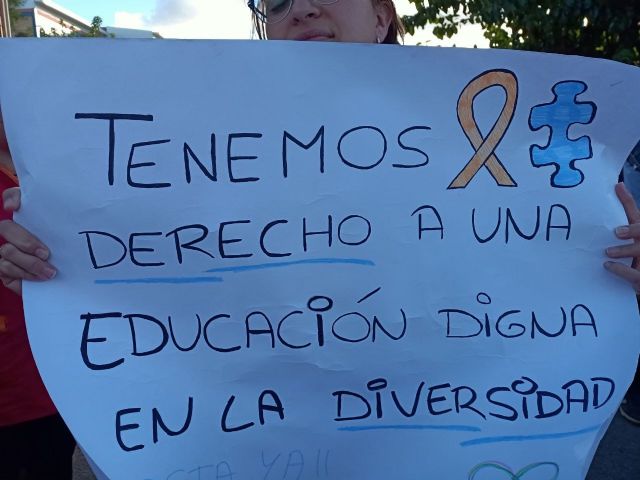 TENEMOS
DERECHO A UNA
EDUCACIÓN DIGNA
EN LA DIVERSIDAD
YA!!